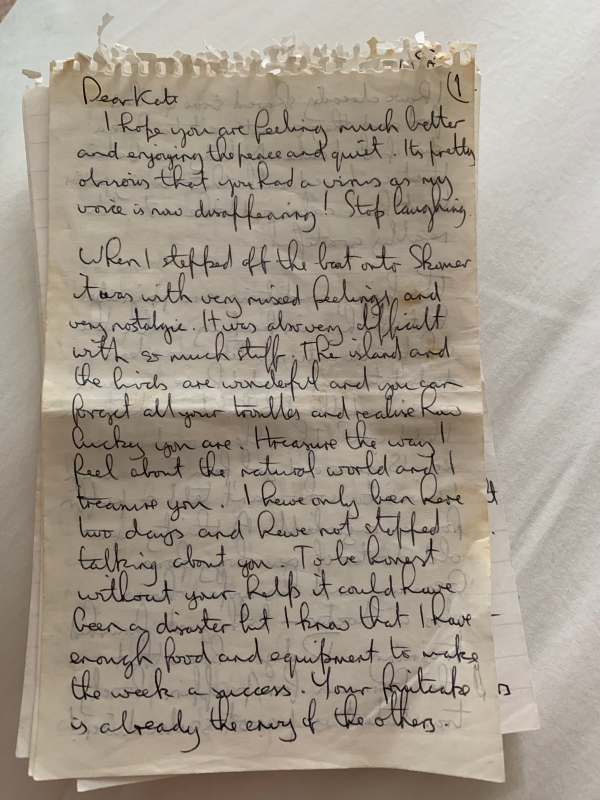 (1
Dear Kate
I hope you are feeling much better
and enjoying the peace and quiet. Its pretty
obvious that you had a virus as my
voice is now disappearing! Stop laughing.
When I stepped off the boat onto Skomer
it was with very mixed feelings and
very nostalgic. It was also very difficult
with so much stuff. The island and
the birds are wonderful and you can
forget all your troubles and realise how
lucky you are. I treasure the way I
feel about the natural world and I
treasure you. I have only been here
two days and have not stopped
talking about you. To be honest
without your help it could have
been a disaster but I know that I have
enough food and equipment to make
the week a success. Your fruitcake
is already the envy of the others.